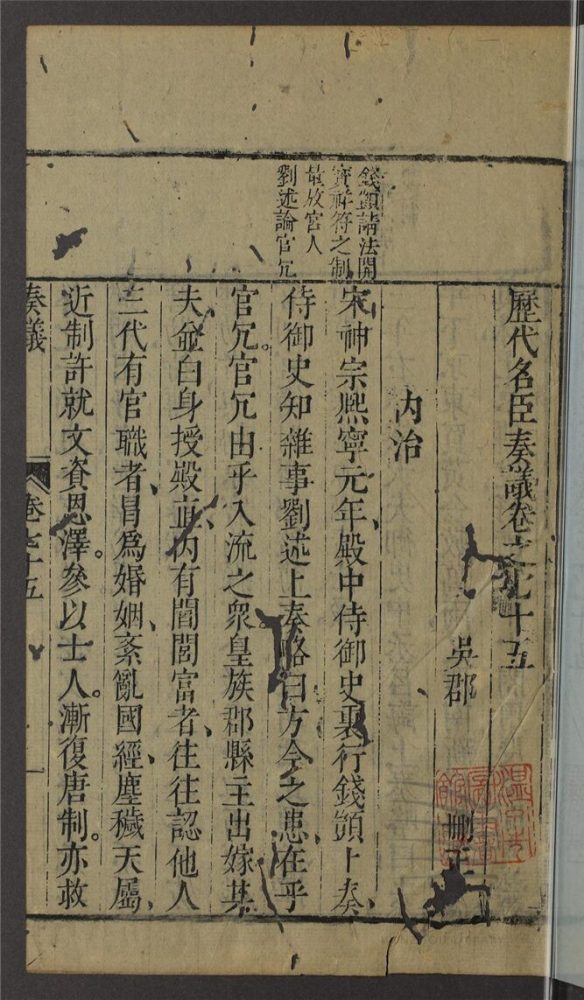 歷代名臣奏議卷之七十五
吳郡 刪正
內治
宋神宗熙寧元年殿中侍御史裏行錢顗上奏
侍御史知雜事劉述上奏略曰方今之患在乎
官冗。官冗由乎入流之衆皇族郡縣主出嫁其
夫並白身授殿直內有閭閻富者往往認他人
三代有官職者冒爲婚姻紊亂國經塵穢天屬
近制許就文資恩澤。參以士人。漸復唐制。亦救
錢顗請法開
寶祥符之制
放宮人
劉述論官冗
奏議
卷七十五
一